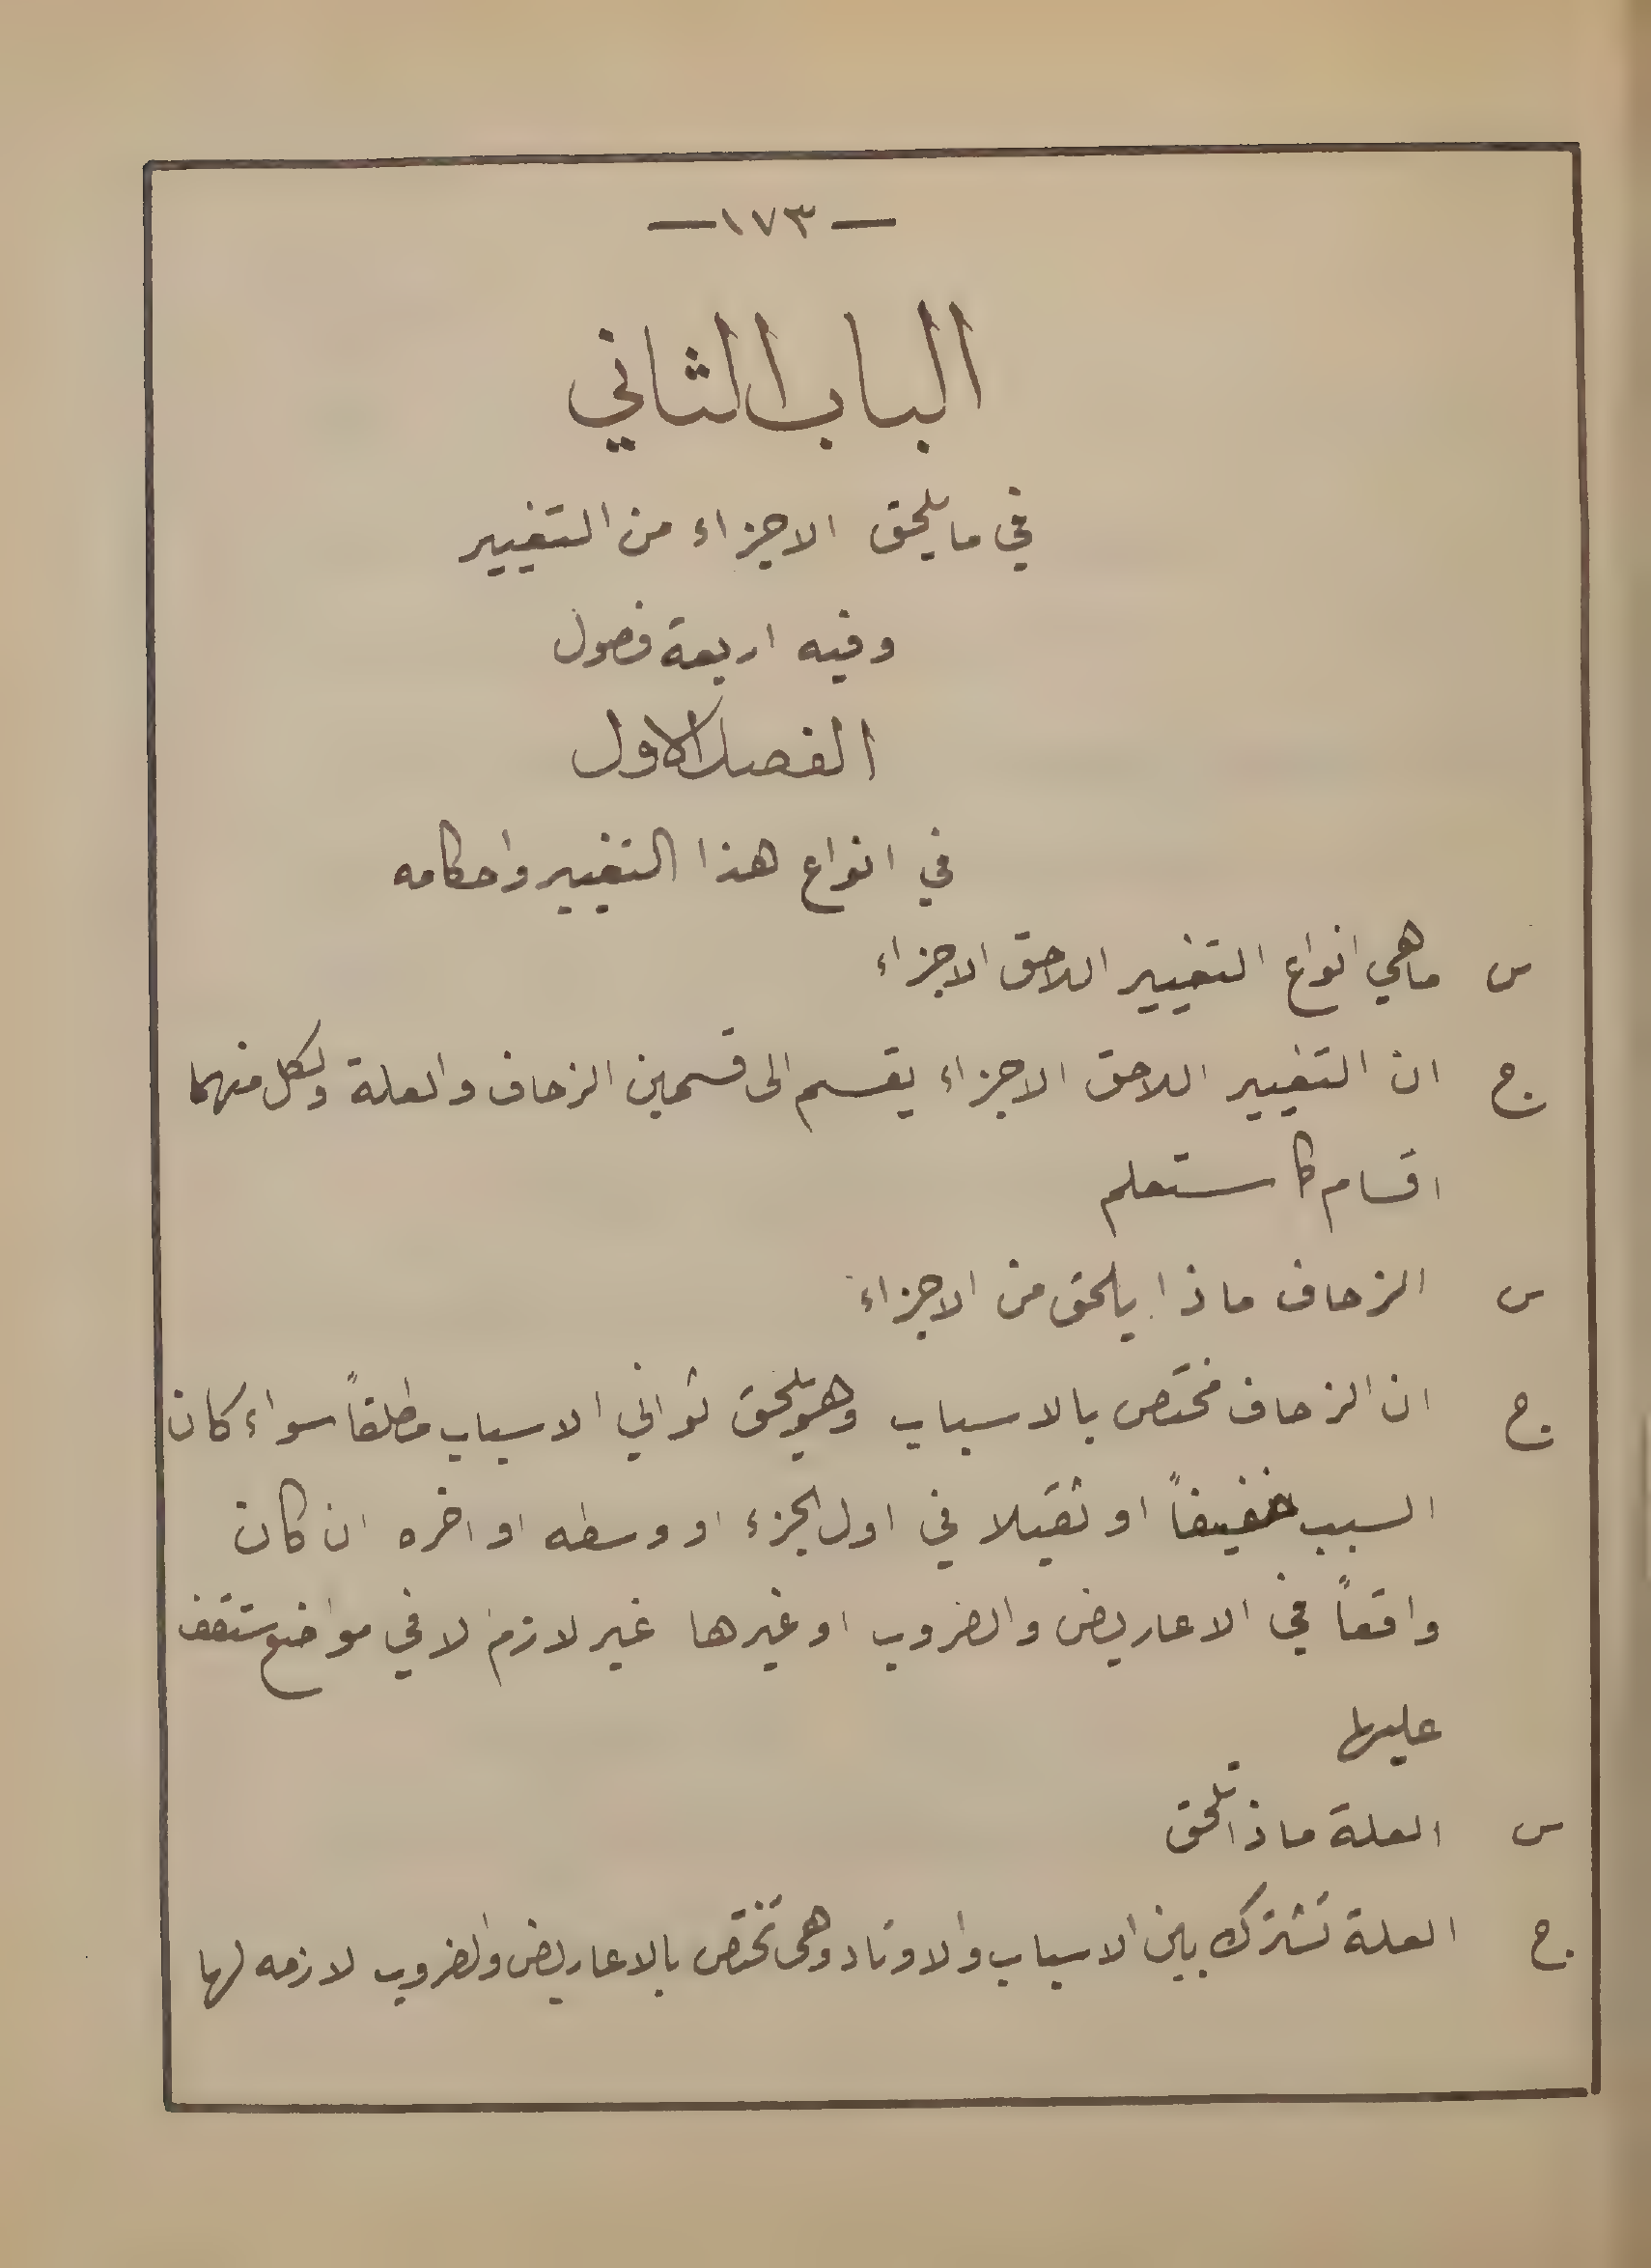 — ١٧٣ —
الباب الثاني
في ما يلحق الاجزاء من التغيير
وفيه اربعة فصول
الفصل الاول
في انواع هذا التغيير واحكامه
س ماهي انواع التغيير اللاحق الاجزاء
ج ان التغيير اللاحق الاجزاء يقسم الى قسمين الزحاف والعلة ولكل منهما
اقسام كما ستعلم
س الزحاف ماذا يلحق من الاجزاء
ج ان الزحاف مختص بالاسباب وهو يلحق ثواني الاسباب مطلقاً سواء كان
السبب خفيفاً او ثقيلا في اول الجزء او وسطه او اخره ان كان
واقعاً في الاعاريض والضروب او غيرها غير لازم لا في مواضع ستقف
عليها
س العلة ماذا تلحق
ج العلة تشترك بين الاسباب والاوتاد وهي تختص بالاعاريض والضروب لازمه لها